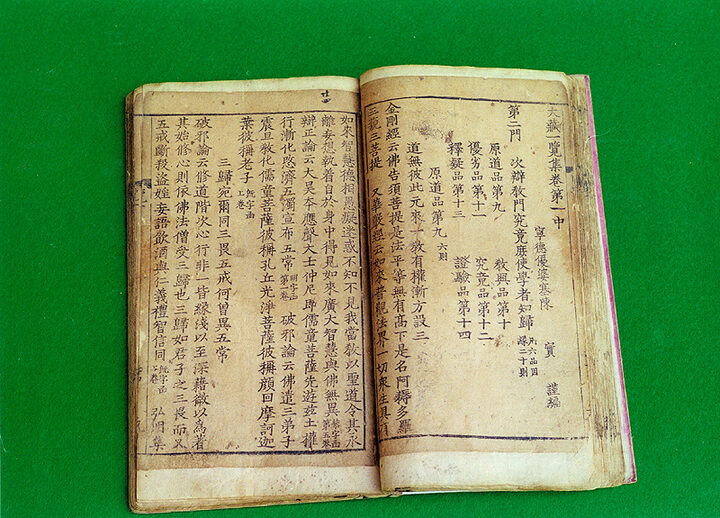 大藏一覽集卷第一中
寧德優婆塞陳 實 謹編
第二門 次辯教門究竟庶使學者知歸 凡六品目 二十則
原道品第九 教興品第十
優劣品第十一 究竟品第十二
釋疑品第十三 證驗品第十四
原道品第九 六則
道無彼此元來一 教有權漸方設三
金剛經云佛告須菩提是法平等無有高下是名阿耨多羅
三藐三菩提 又華嚴經云如來普觀法界一切衆生具有
如來智慧德相愚癡迷惑不知不見我當教以聖道令其永
離妄想執着自於身中得見如來廣大智慧與佛無異 字函 第五卷
辯正論云大昊本應聲大士仲尼即儒童菩薩先遊茲土權
行漸化愍濟五濁宣布五常 明字函 第一卷 破邪論云佛遣三弟子
震旦教化儒童菩薩彼稱孔丘光淨菩薩彼稱顏回摩訶迦
葉彼稱老子 旣字函 上卷
三歸宛爾同三畏五戒何曾異五常
破邪論云修道階次心行非一皆緣淺以至深藉微以爲著
其始修心則依佛法僧受三歸也三歸如君子之三畏而又
五戒斷殺盜婬妄語飲酒與仁義禮智信同 旣字函 上卷 弘明集